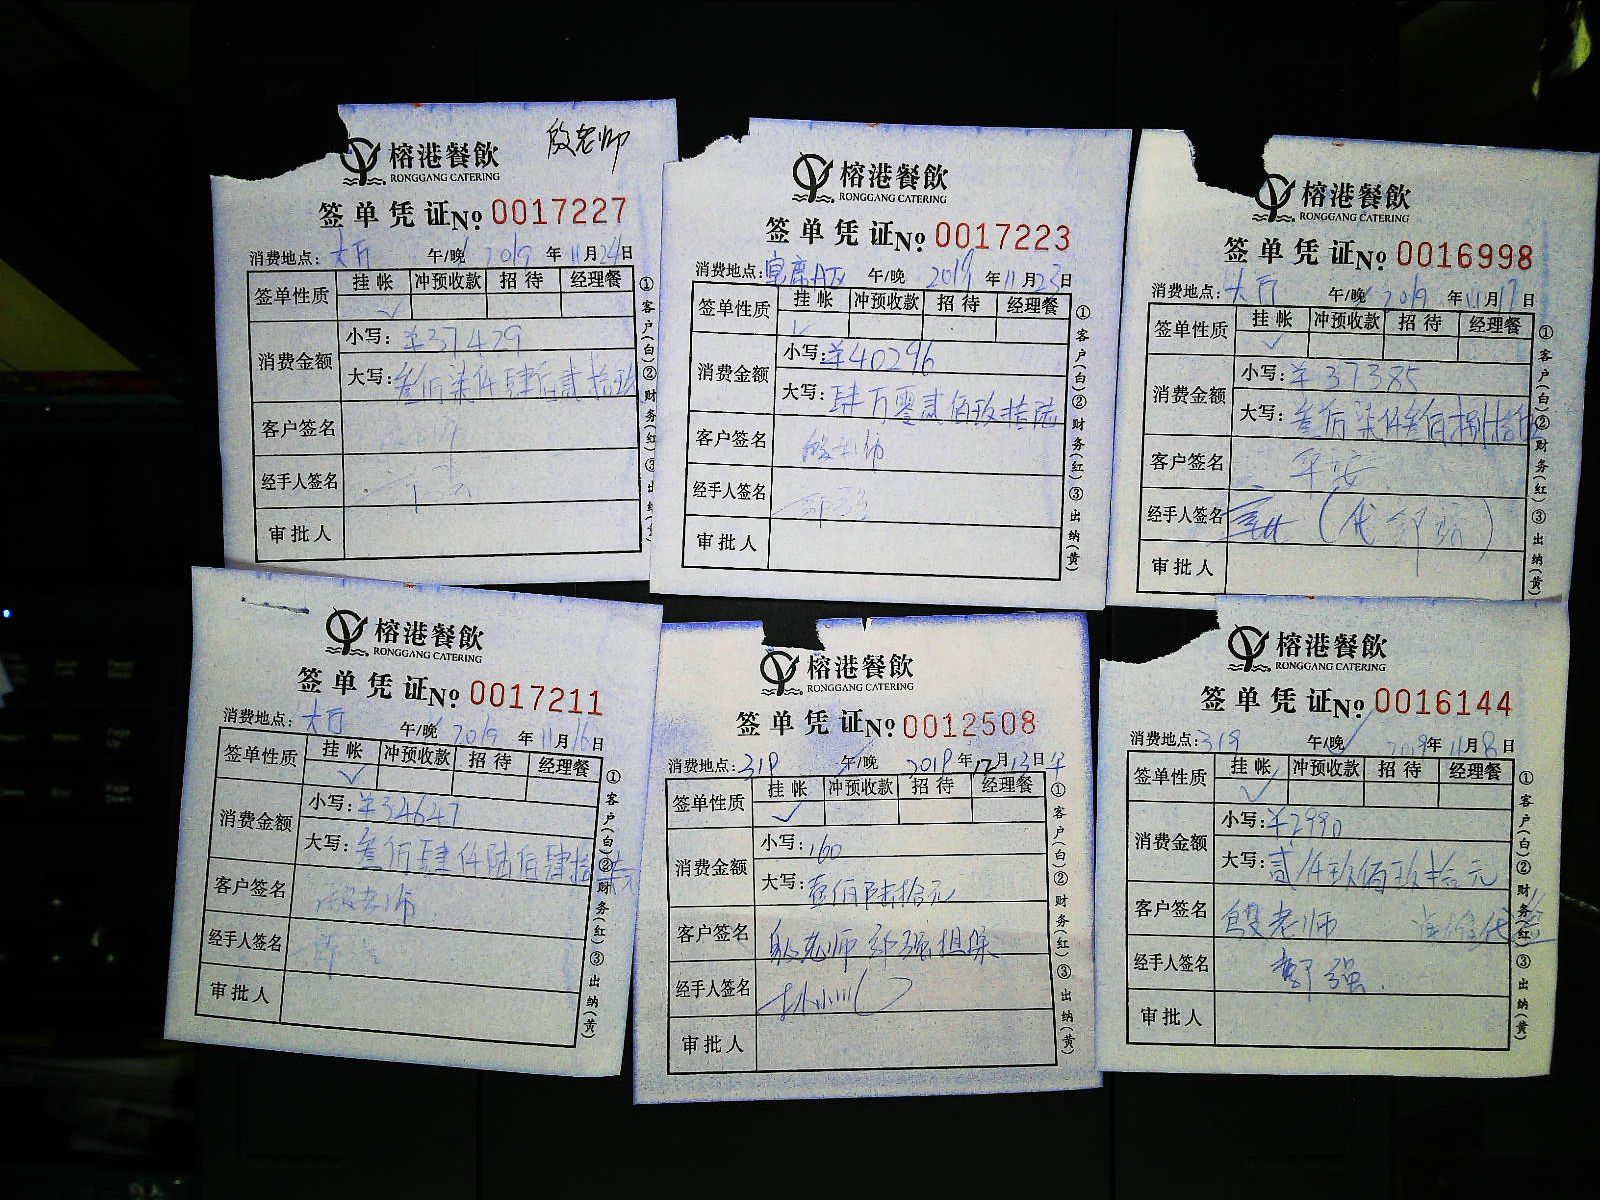 殷老师
榕港餐飲
RONGGANG CATERING
签单凭证№ 0017227
消费地点：大厅 午/晚 2019年11月24日
签单性质 挂帐 冲预收款 招待 经理餐
✓
消费金额 小写：¥37429
大写：叁万柒仟肆佰贰拾玖
客户签名
经手人签名
审批人
①客户(白)②财务(红)③出纳(黄)
榕港餐飲
RONGGANG CATERING
签单凭证№ 0017223
消费地点：宴席A区 午/晚 2019年11月23日
签单性质 挂帐 冲预收款 招待 经理餐
✓
消费金额 小写：¥40296
大写：肆万零贰佰玖拾陆
客户签名 殷老师
经手人签名 邹强
审批人
①客户(白)②财务(红)③出纳(黄)
榕港餐飲
RONGGANG CATERING
签单凭证№ 0016998
消费地点：大厅 午/晚 2019年11月17日
签单性质 挂帐 冲预收款 招待 经理餐
✓
消费金额 小写：¥37385
大写：叁万柒仟叁佰捌拾伍
客户签名 平安
经手人签名 (代邹琼)
审批人
①客户(白)②财务(红)③出纳(黄)
榕港餐飲
RONGGANG CATERING
签单凭证№ 0017211
消费地点：大厅 午/晚 2019年11月16日
签单性质 挂帐 冲预收款 招待 经理餐
✓
消费金额 小写：¥34647
大写：叁万肆仟陆佰肆拾柒元
客户签名 殷老师
经手人签名
审批人
①客户(白)②财务(红)③出纳(黄)
榕港餐飲
RONGGANG CATERING
签单凭证№ 0012508
消费地点：319 午/晚 2019年12月13日午
签单性质 挂帐 冲预收款 招待 经理餐
✓
消费金额 小写：160
大写：壹佰陆拾元
客户签名 殷老师 邹强担保
经手人签名 林小川
审批人
①客户(白)②财务(红)③出纳(黄)
榕港餐飲
RONGGANG CATERING
签单凭证№ 0016144
消费地点：319 午/晚 2019年11月8日
签单性质 挂帐 冲预收款 招待 经理餐
✓
消费金额 小写：¥2990
大写：贰仟玖佰玖拾元
客户签名 殷老师 代签
经手人签名 邹强
审批人
①客户(白)②财务(红)③出纳(黄)